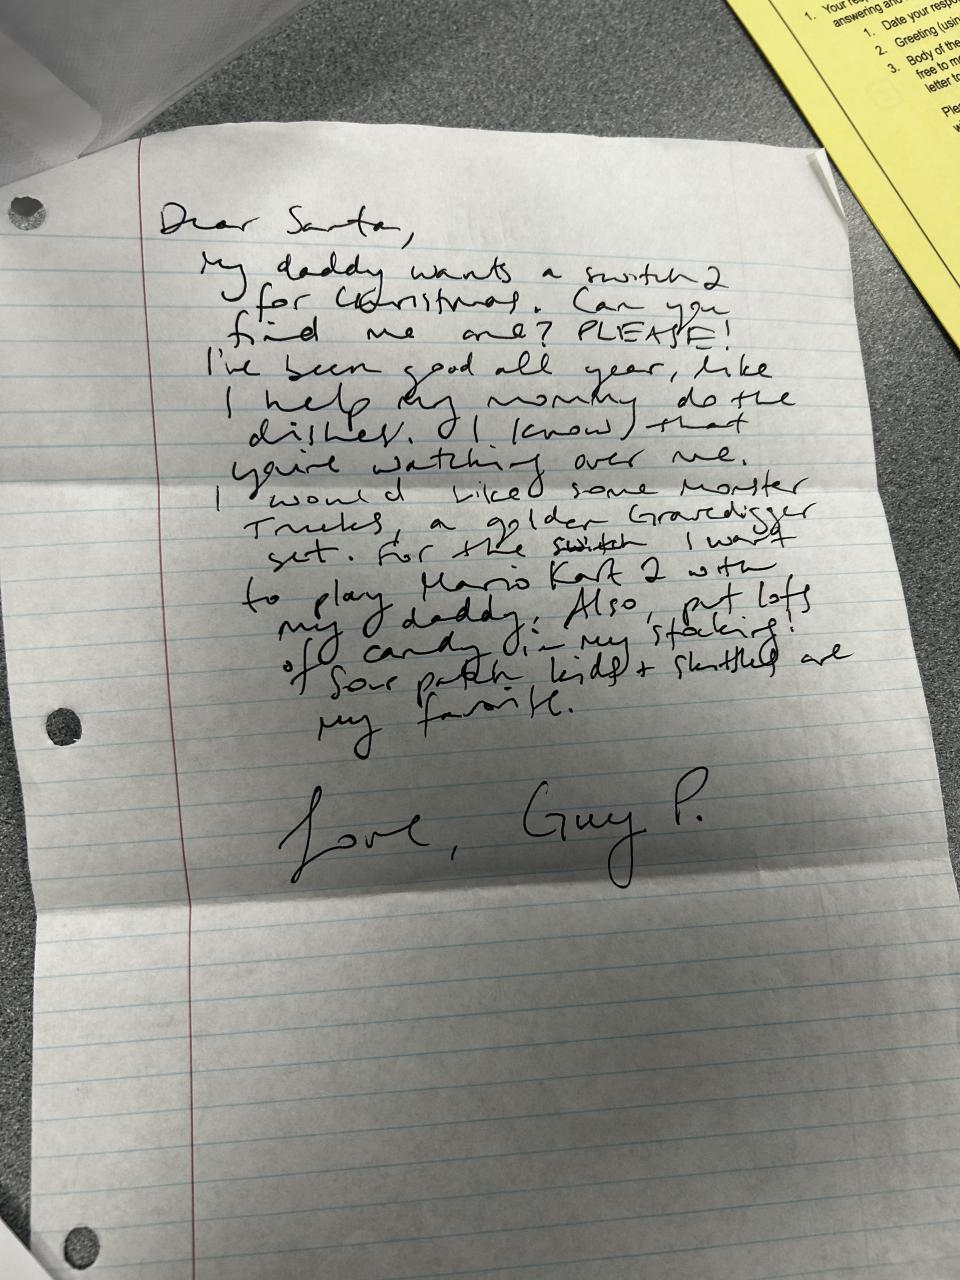 Dear Santa,
My daddy wants a switch 2
for Christmas. Can you
find me one? PLEASE!
I've been good all year, like
I help my mommy do the
dishes. I know that
you're watching over me.
I would like some Monster
Trucks, a golden Gravedigger
set. For the switch I want
to play Mario Kart 2 with
my daddy. Also, put lots
of candy in my stocking!
Sour patch kids + skittles are
my favorite.
Love, Guy P.
1. Your
answering and
1. Date your
2. Greeting
3. Body of the
free to
letter to